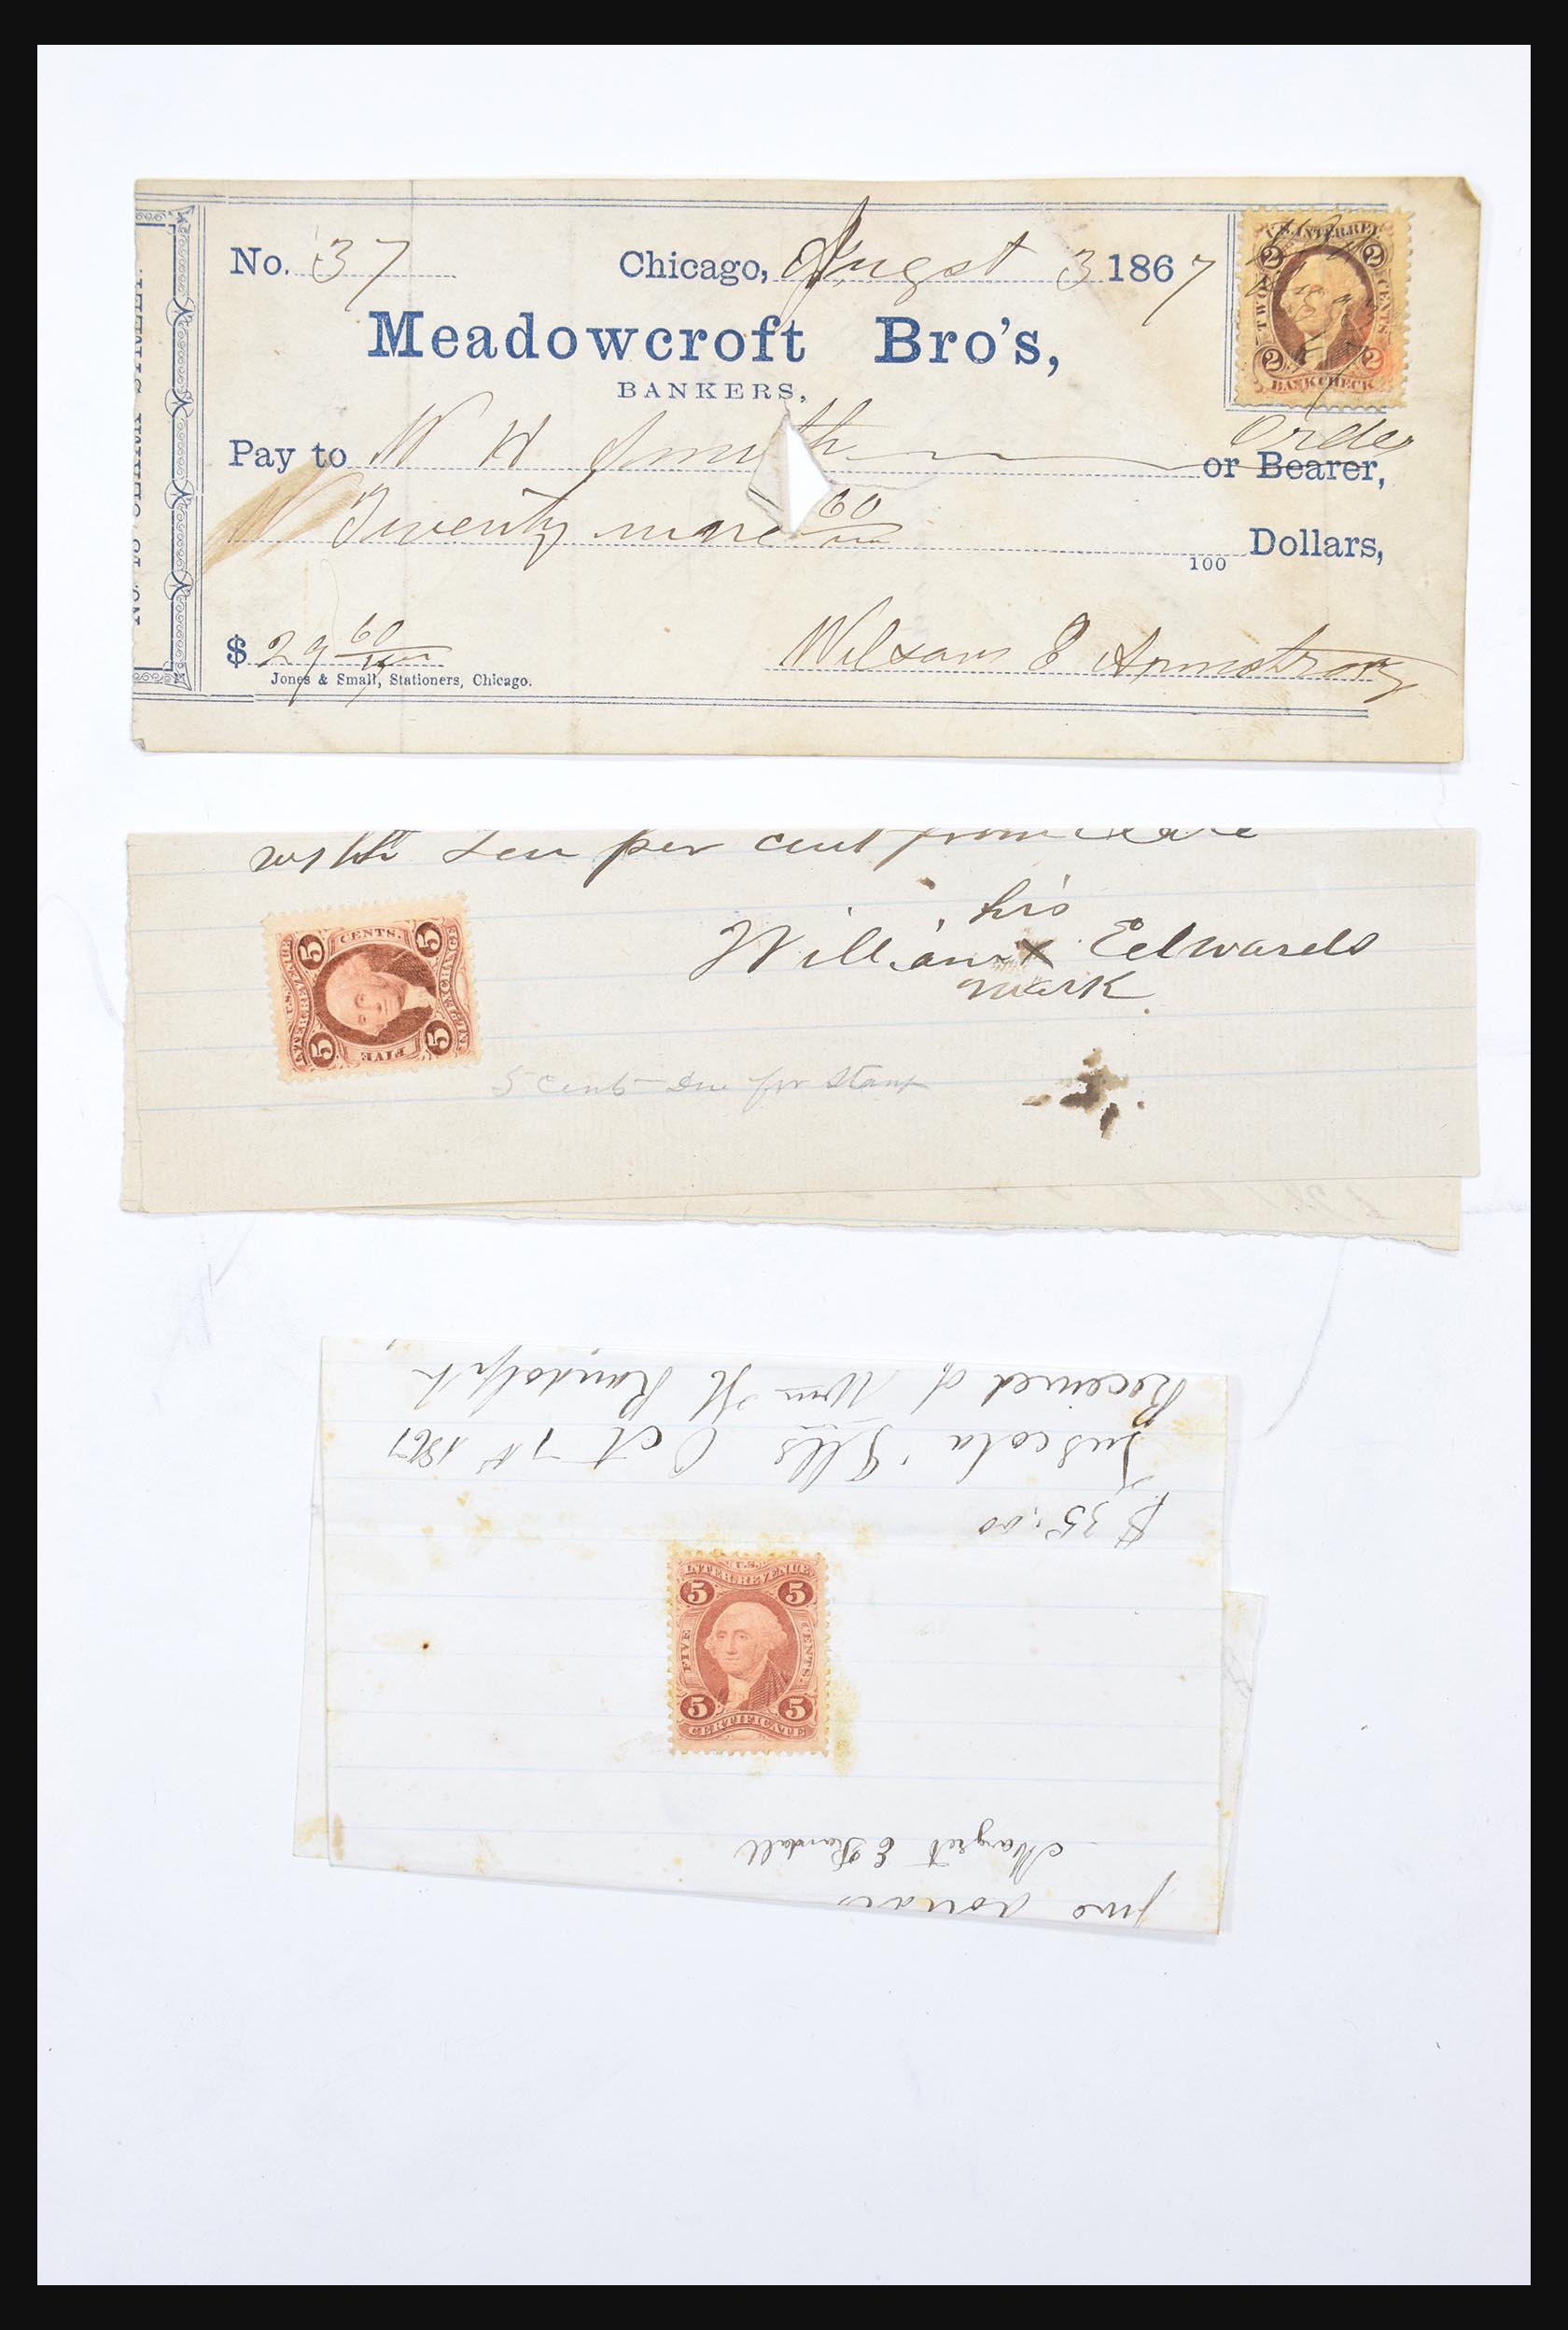 No. 37 Chicago, August 3 1867
Meadowcroft Bro's,
BANKERS,
Pay to W H Smith or Bearer, Order
Twenty nine 60 Dollars,
100
$ 29 60
Jones & Small, Stationers, Chicago.
E Armstrong
U.S. INTER. REV.
2 2
TWO CENTS
2 2
BANK CHECK
with Ten per cent from
his
William X Edwards
mark
5 cents Due for Stamp
U.S. INTER. REVENUE
5 CENTS. 5
5 FIVE 5
INL. EXCHANGE
Received of Wm H Randolph
Tuscola Ills Oct 7th 1867
$35.00
U.S.
INTER. REVENUE
5 5
FIVE CENTS.
5 5
CERTIFICATE
Margret E Randall
five dollars